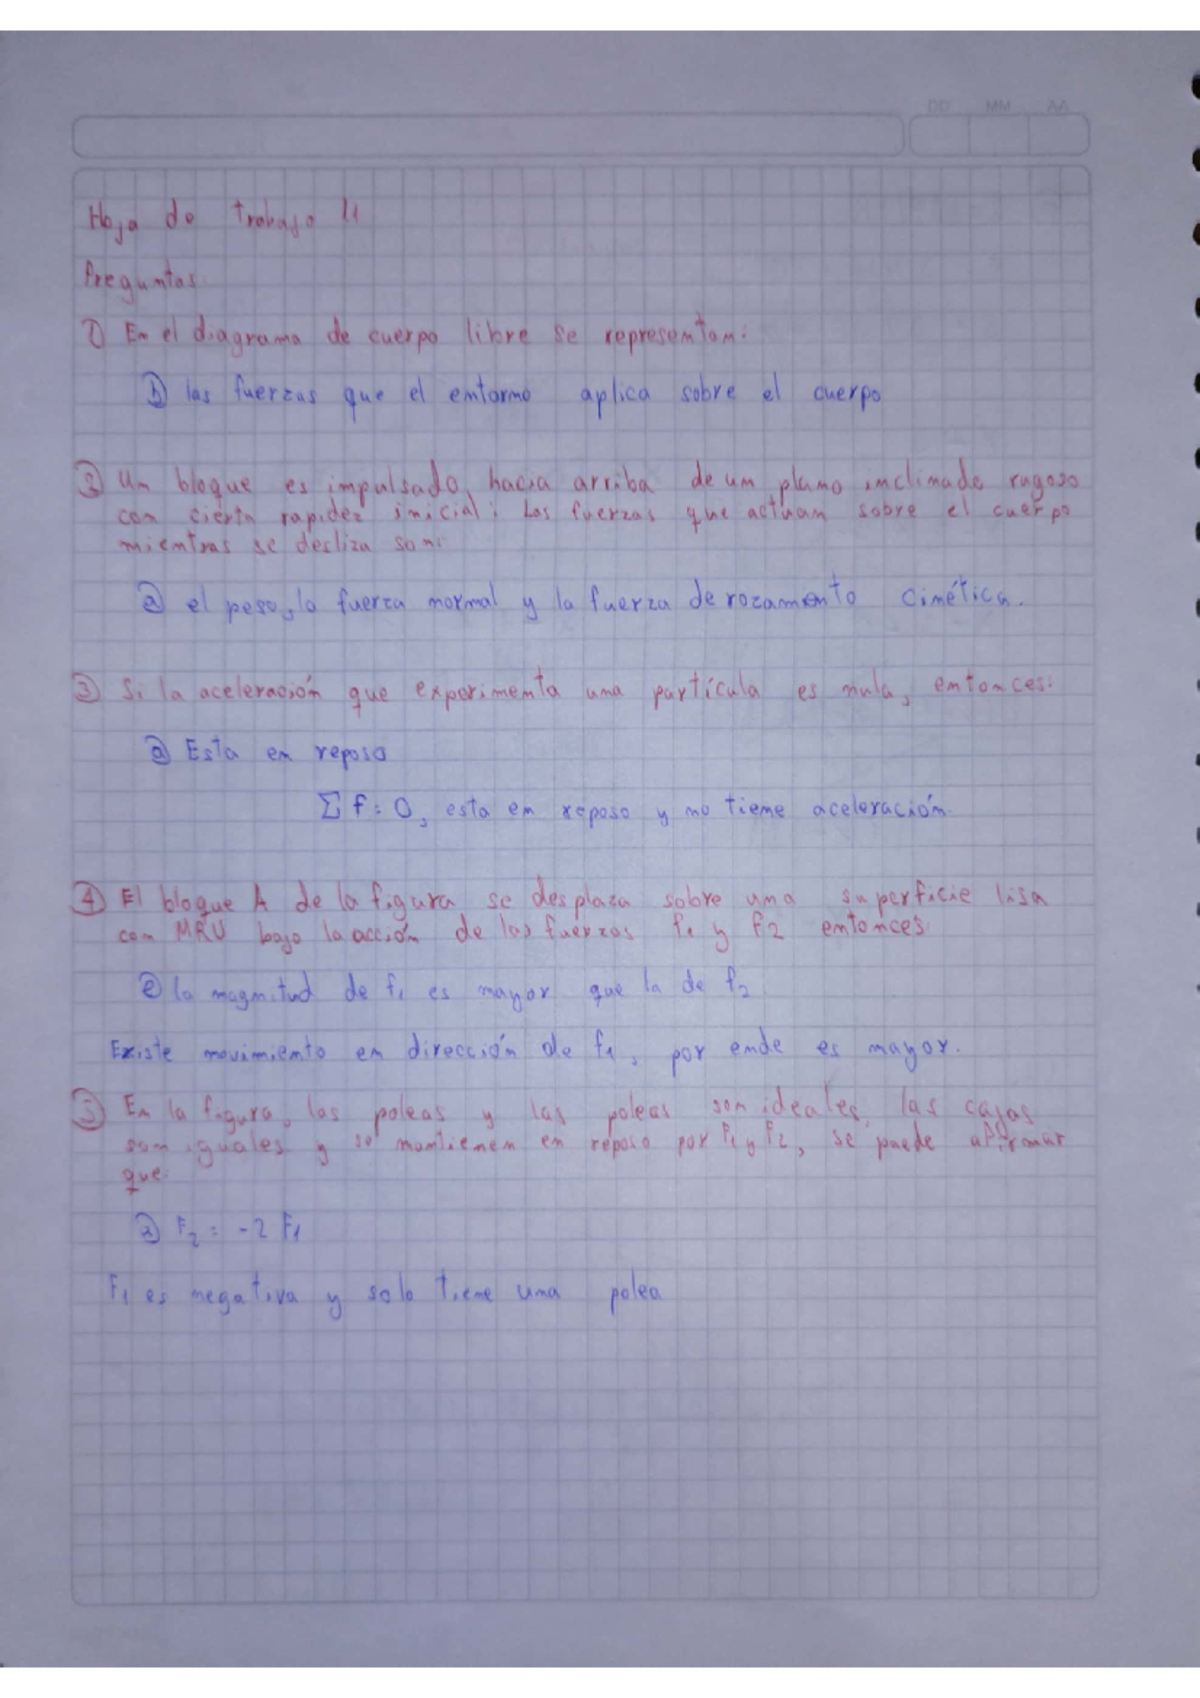 DD MM AA
Hoja de trabajo 11
Preguntas:
① En el diagrama de cuerpo libre se representan:
ⓑ las fuerzas que el entorno aplica sobre el cuerpo
② Un bloque es impulsado hacia arriba de um plano inclinado rugoso
con cierta rapidez inicial; Las fuerzas que actuan sobre el cuerpo
mientras se desliza son:
ⓐ el peso, la fuerza normal y la fuerza de rozamiento cinética.
③ Si la aceleración que experimenta una partícula es nula, entonces:
ⓐ Esta en reposo
∑ f = 0, esta en reposo y no tieme aceleración.
④ El bloque A de la figura se desplaza sobre una superficie lisa
con MRU bajo la acción de las fuerzas f1 y f2 entonces:
ⓔ la magnitud de f1 es mayor que la de f2
Existe movimiento en dirección de f1, por ende es mayor.
⑤ En la figura, las poleas y las poleas son ideales, las cajas
son iguales y se mantienen en reposo por F1 y F2, se puede afirmar
que:
ⓐ F2 = -2 F1
F1 es negativa y solo tiene una polea